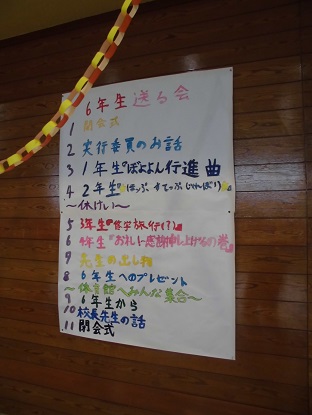 6年生送る会
1 開会式
2 実行委員のお話
3 1年生『ぱよよん行進曲
4 2年生『
～休けい～
5 3年生『修学旅行(?)』
6 4年生『おれい 感謝申し上げるの巻』
7 先生の出し物
8 6年生へのプレゼント
～体育館へみんな集合～
9 6年生から
10 校長先生の話
11 閉会式